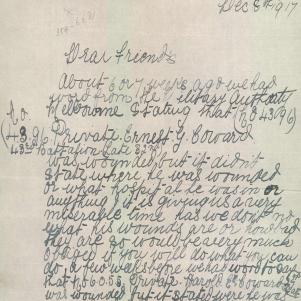 Dec 8th 1917
Dear Friends
About 6 or 7 weeks ago we had
word from the Military Authority
Melbourne stating that (No 4309 6)
Private Ernest G. Coward
43rd Battalion late 32nd
was wounded, but it didn't
state where he was wounded
or what hospital he was in or
anything it is giving us a very
miserable time has we dont no
what his wounds are or how bad
they are so would be a very much
obliged if you will do what you can
do, a few weeks before we had word to say
that No 6055, Private Harold Coward
was wounded but it stated we